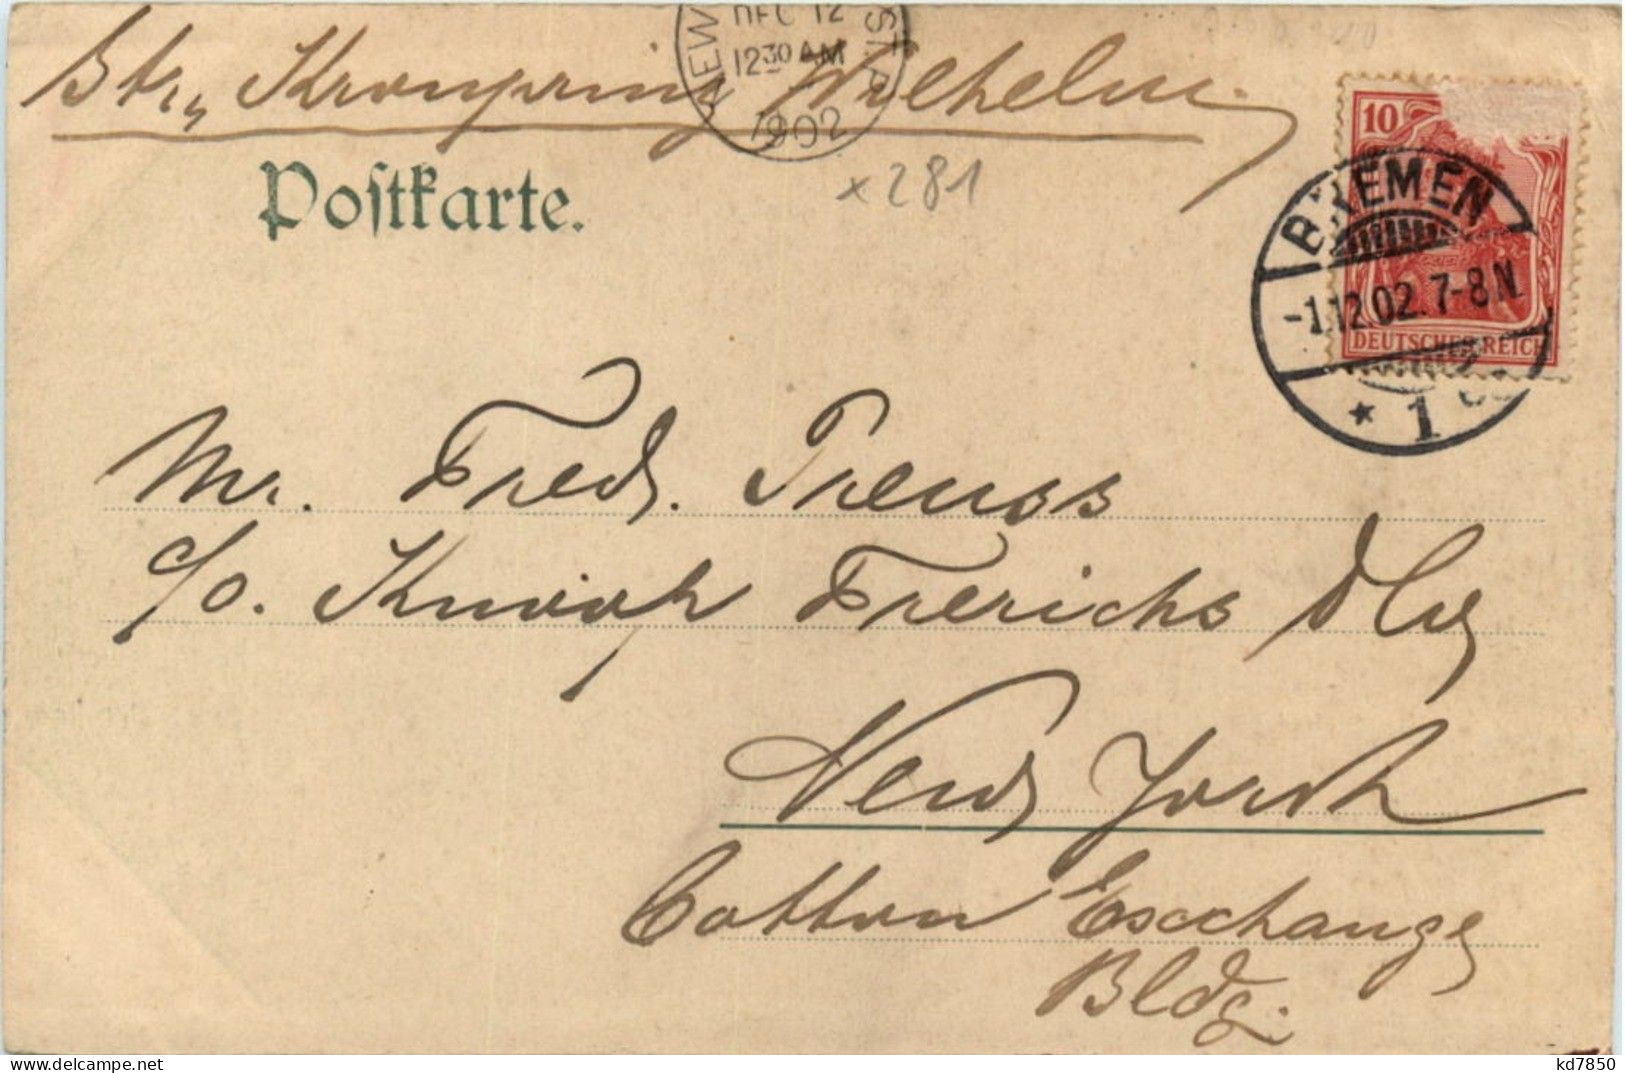 Str. Kronprinz Wilhelm.
NEW
ST. P.
DEC 12
12 30 AM
1902
Postkarte.
× 281
10
DEUTSCHES REICH
BREMEN
-1.12.02. 7-8 N.
* 1
Mr. Fred. Preuss
c/o. Knoop Frerichs &
New York
Cotton Exchange
Bldg.
delcampe.net
kd7850